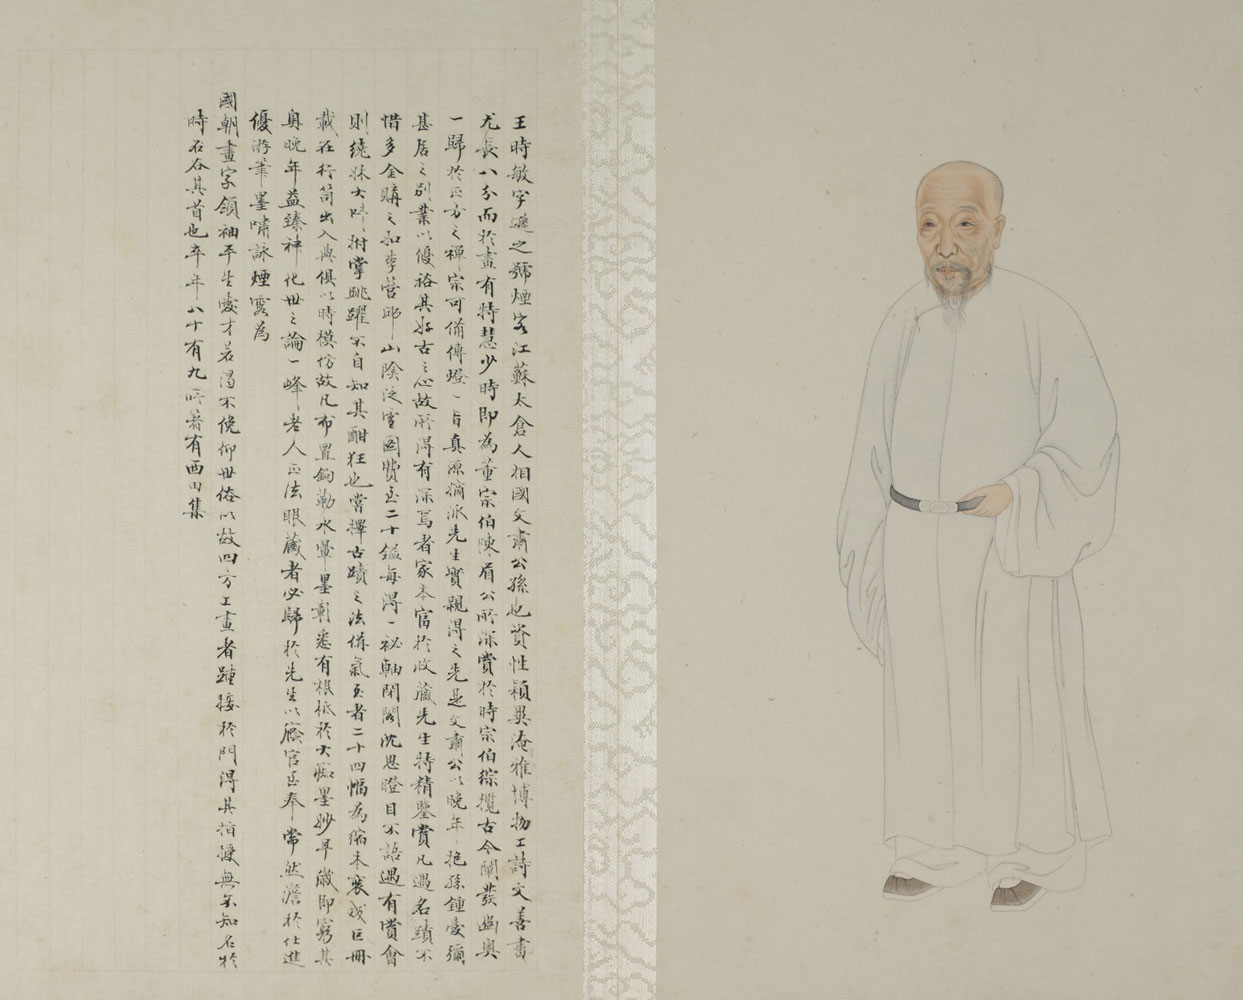 王時敏字遜之號煙客江蘇太倉人相國文肅公孫也資性穎異淹雅博物工詩文善書
尤長八分而於畫有特慧少時即為董宗伯陳眉公所深賞於時宗伯綜攬古今闡發幽奧
一歸於正方之禪宗可備傳燈一旨真源滴派先生實親得之先是文肅公以晚年抱孫鍾愛彌
甚居之別業以優裕其好古之心故所得有深焉者家本富於收藏先生特精鑒賞凡遇名蹟不
惜多金購之如李營邱山陰泛雪圖費至二十鎰每得一祕軸閉閣沈思瞪目不語遇有賞會
則繞牀大呼拊掌跳躍不自知其酣狂也嘗擇古蹟之法備氣至者二十四幅為縮本裝成巨冊
載在行笥出入與俱以時模仿故凡布置鉤勒水暈墨彰悉有根柢於大癡墨妙早歲即窮其
奧晚年益臻神化世之論一峰老人正法眼藏者必歸於先生以廕官至奉常然澹於仕進
優游筆墨嘯詠煙霞為
國朝畫字領袖平生愛才若渴不俛仰世俗以故四方工畫者踵接於門得其指授無不知名於
時石谷其首也卒年八十有九所著有西田集